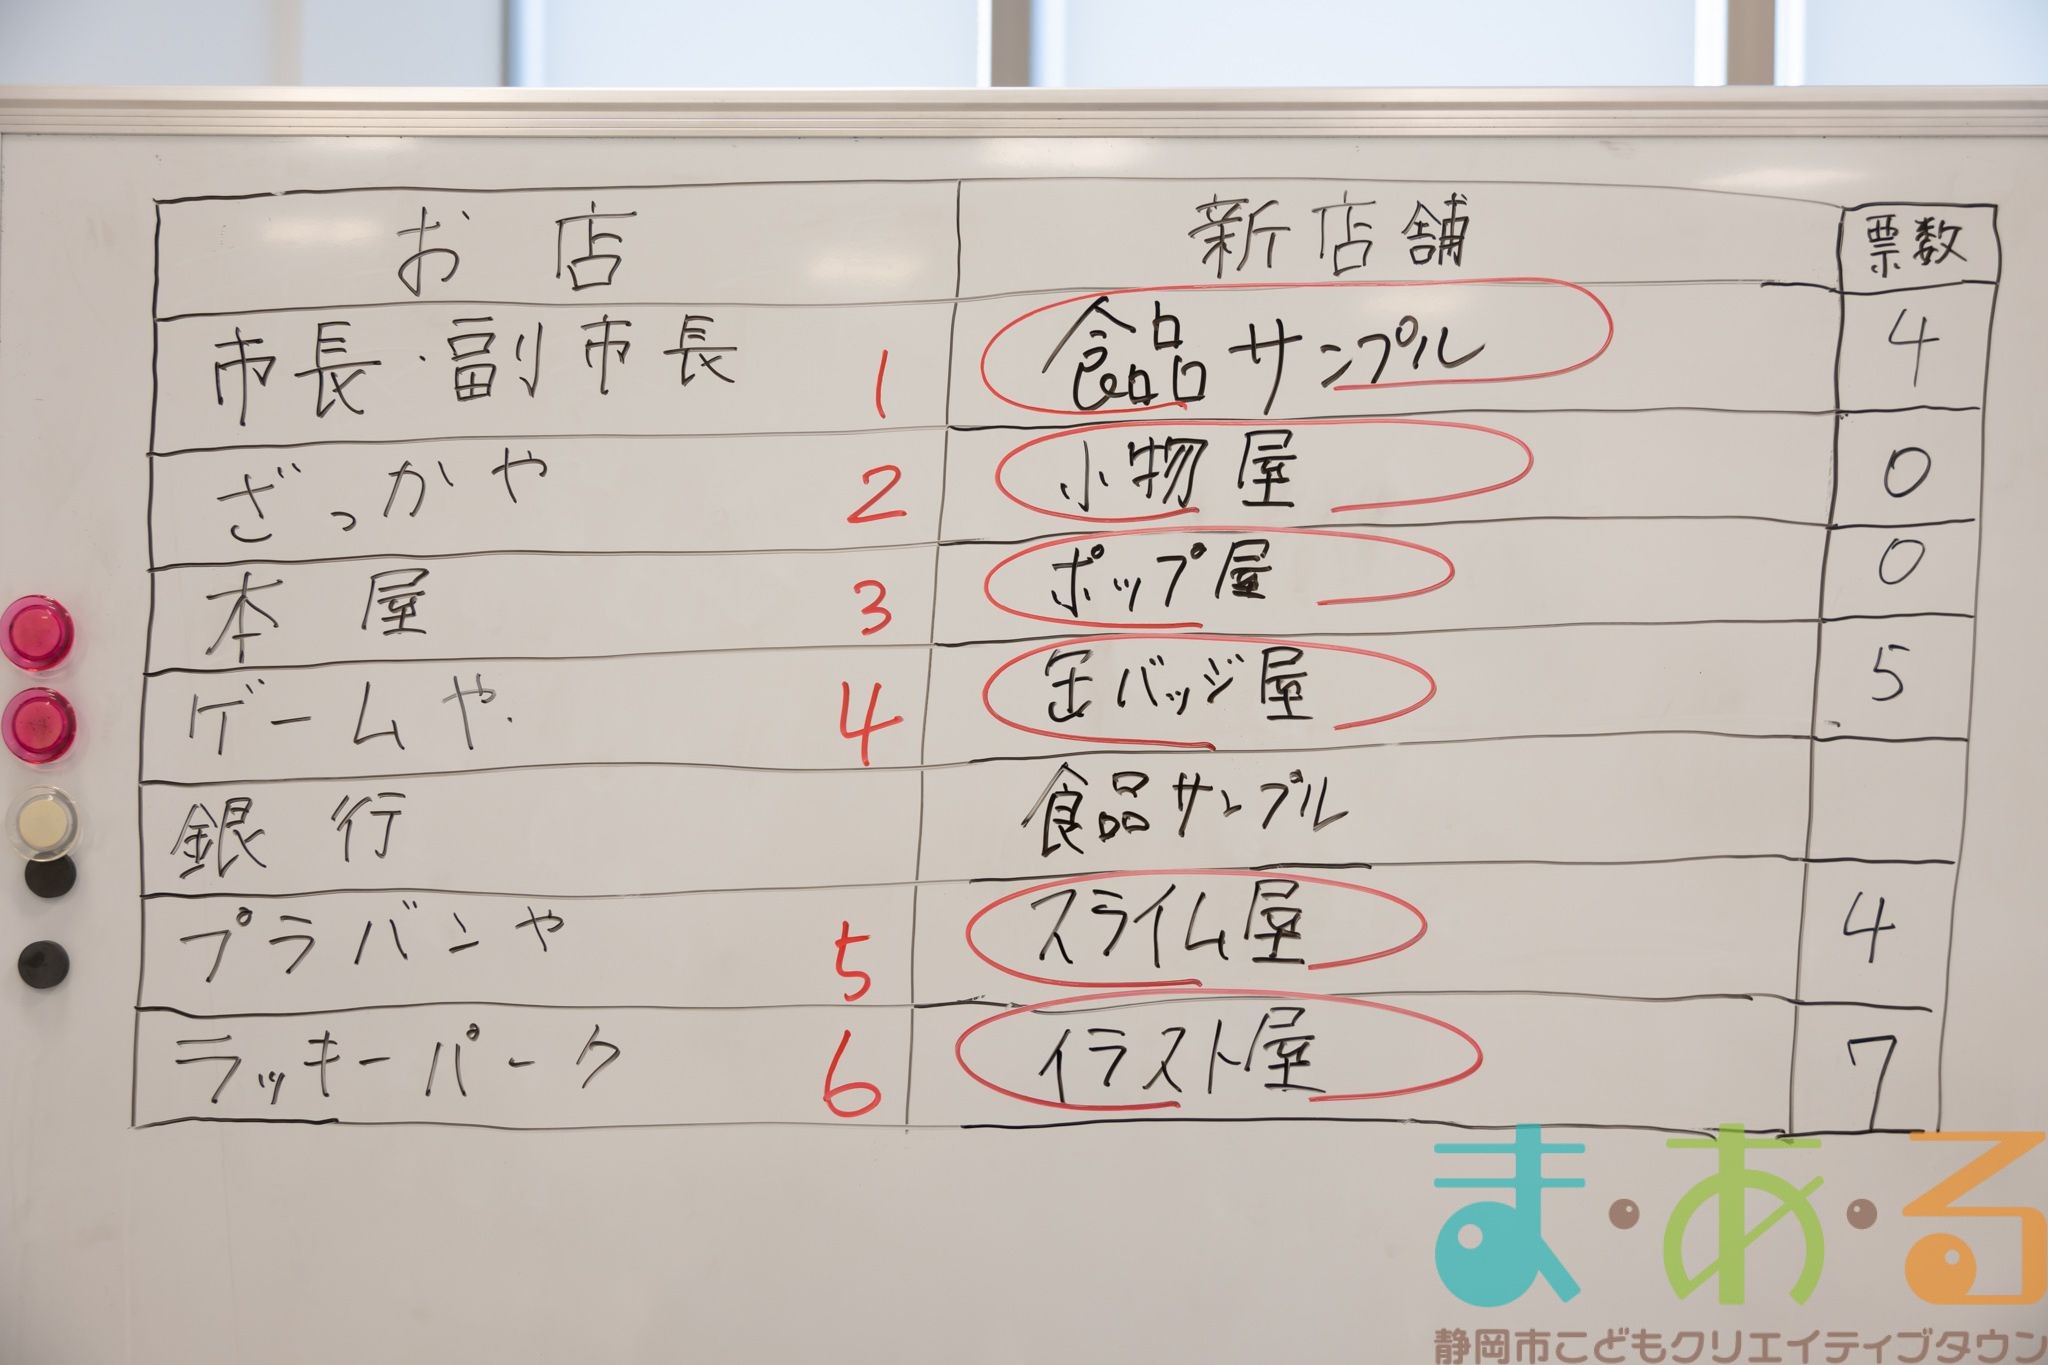 お店 新店舗 票数
市長・副市長 1 食品サンプル 4
ざっかや 2 小物屋 0
本屋 3 ポップ屋 0
ゲームや 4 缶バッジ屋 5
銀行 食品サンプル
プラバンや 5 スライム屋 4
ラッキーパーク 6 イラスト屋 7
ま・あ・る
静岡市こどもクリエイティブタウン